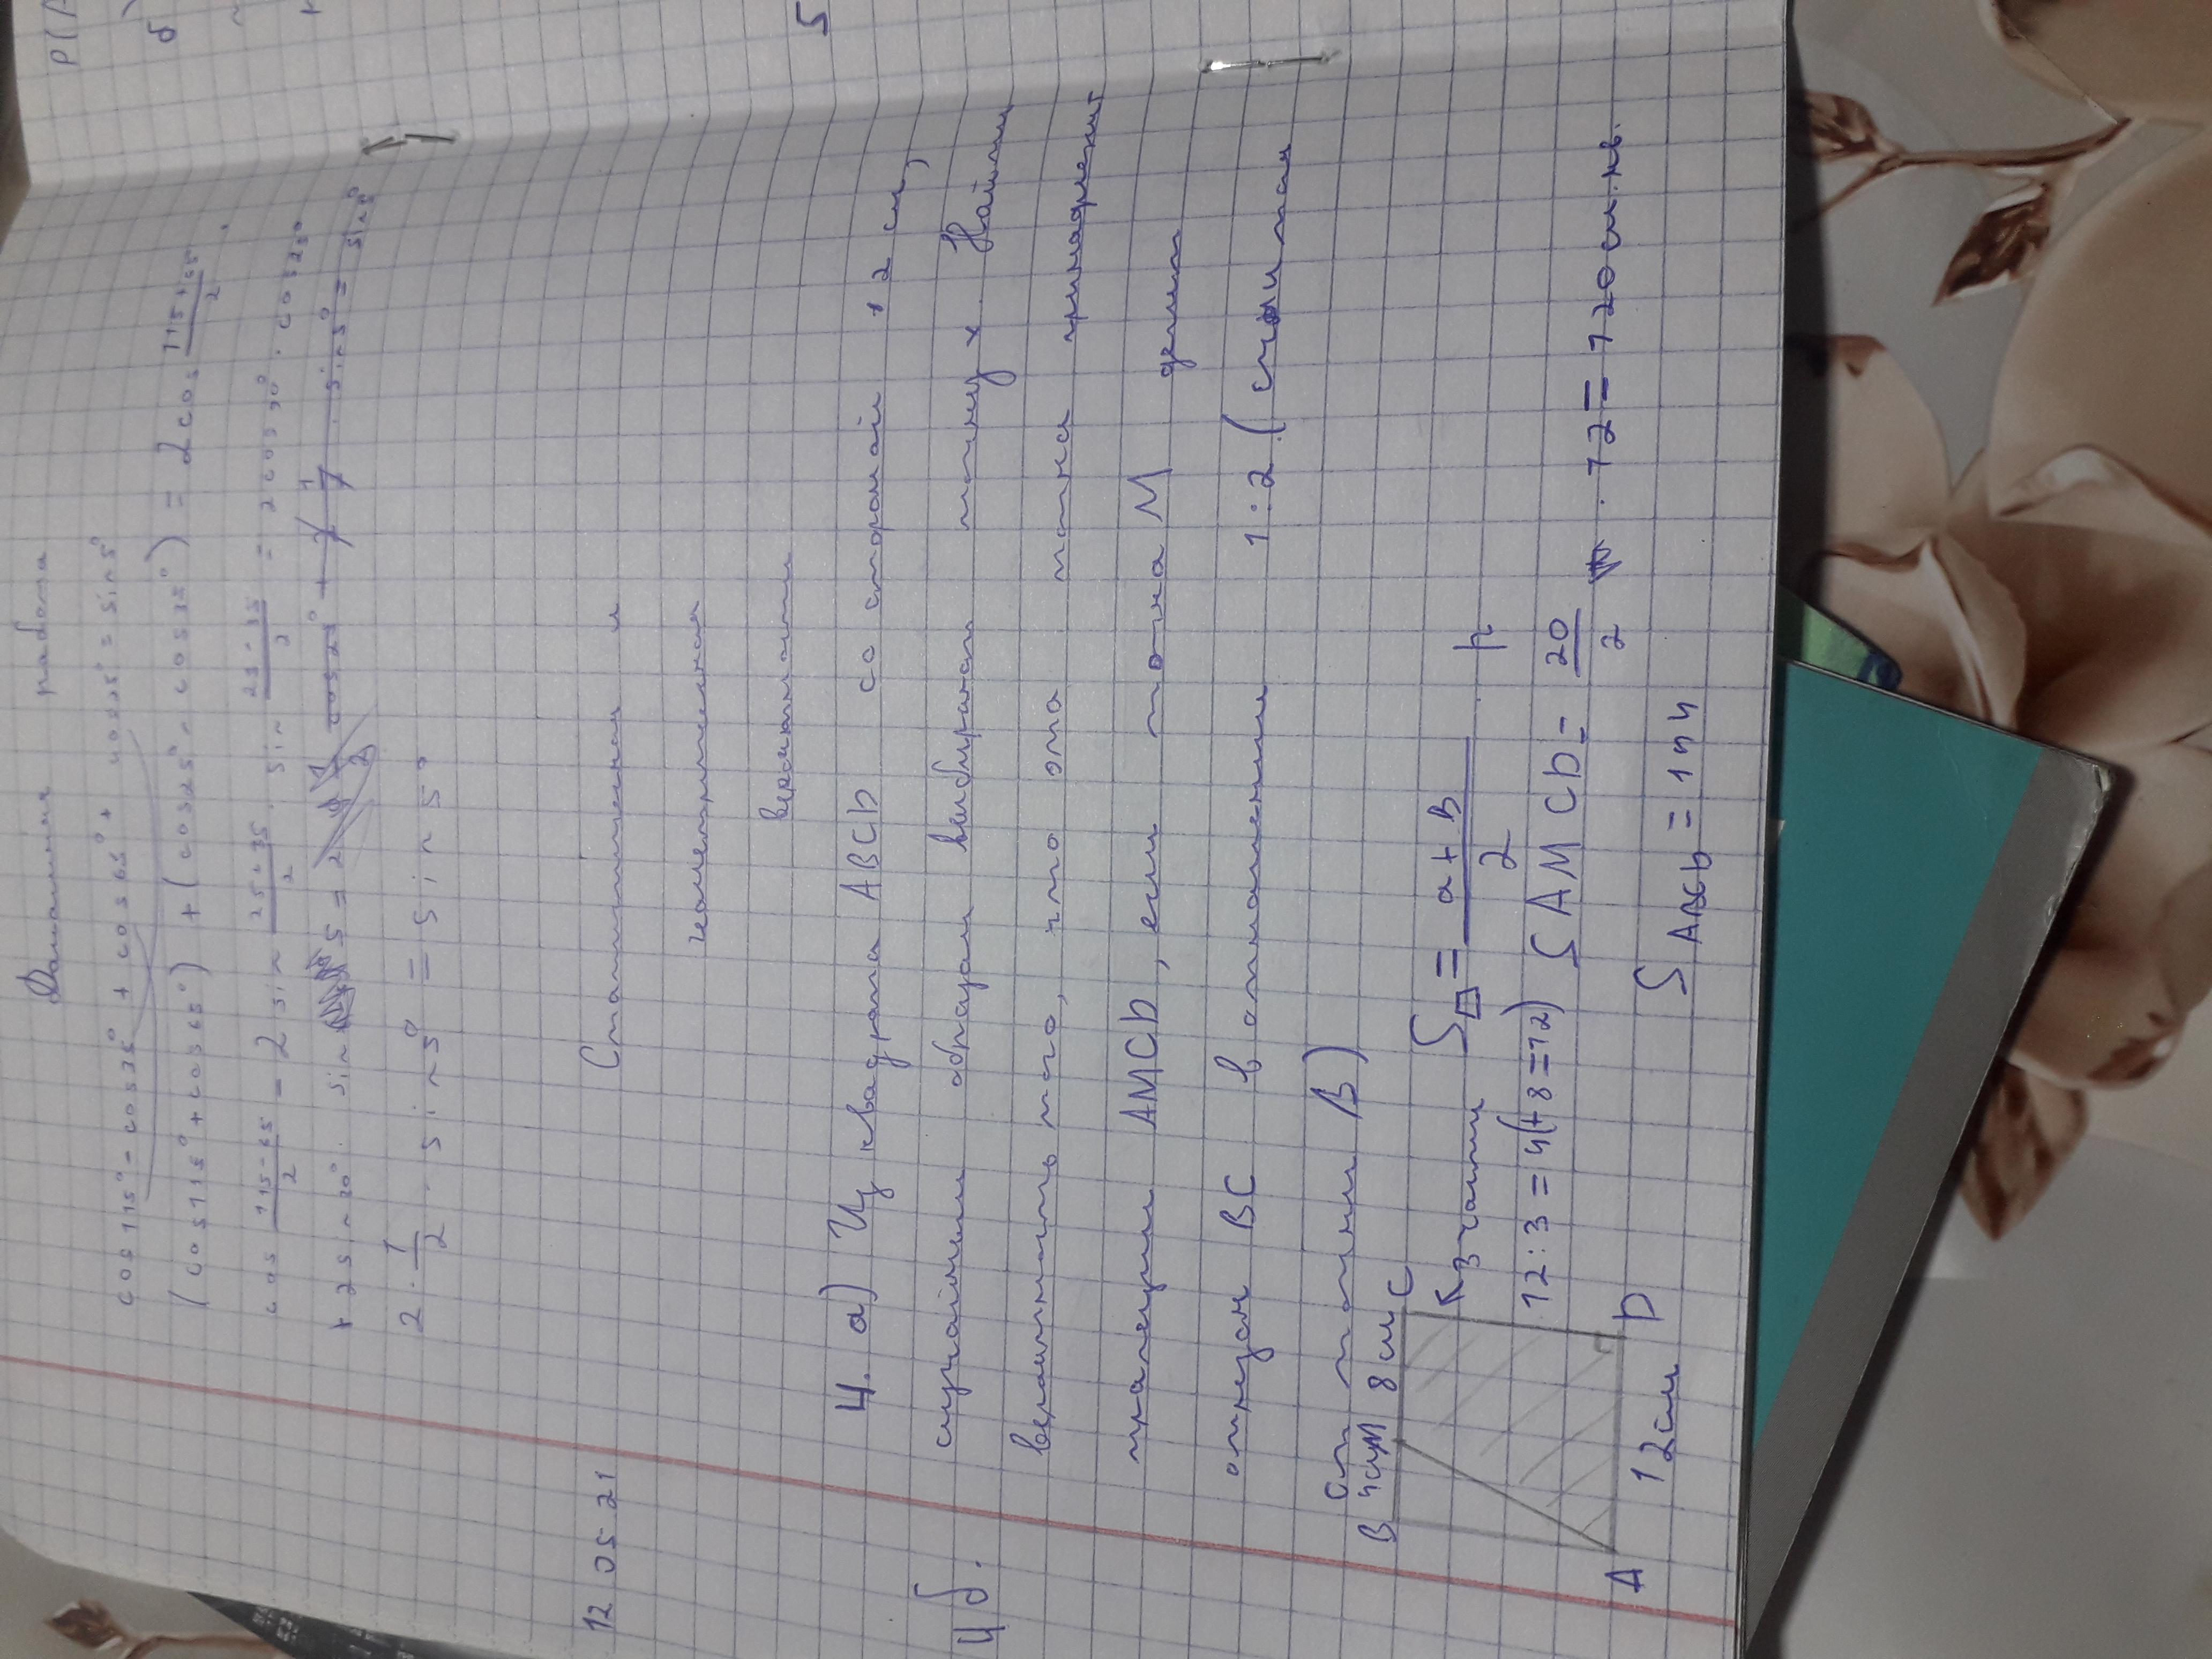 Домашняя работа
cos 115° - cos 35° + cos 65° + cos 25° = sin 5°
(cos 115° + cos 65°) + (cos 25° - cos 35°) = 2 cos (115+65)/2 ·
cos (115-65)/2 - 2 sin (25+35)/2 · sin (25-35)/2 = 2 cos 90° · cos 25°
+ 2 sin 30° · sin 5 = 2
2 · 1/2 · sin 5° = sin 5°
12 05 21
Статистическая и
геометрическая
вероятности
4. а) Из квадрата ABCD со стороной 12 см,
4 б.
случайным образом выбирают точку X. Найти
вероятность того, что эта точка принадлежит
трапеции AMCD, если точка M делит
отрезок BC в отношении 1:2 (считая
от точки B)
B 4см M 8см C
3 части S = a+b/2 · h
12:3=4(+8=12) S AMCD = 20/2 · 12 = 120 см.кв.
A 12см D
S ABCD = 144
P(A
б)
5